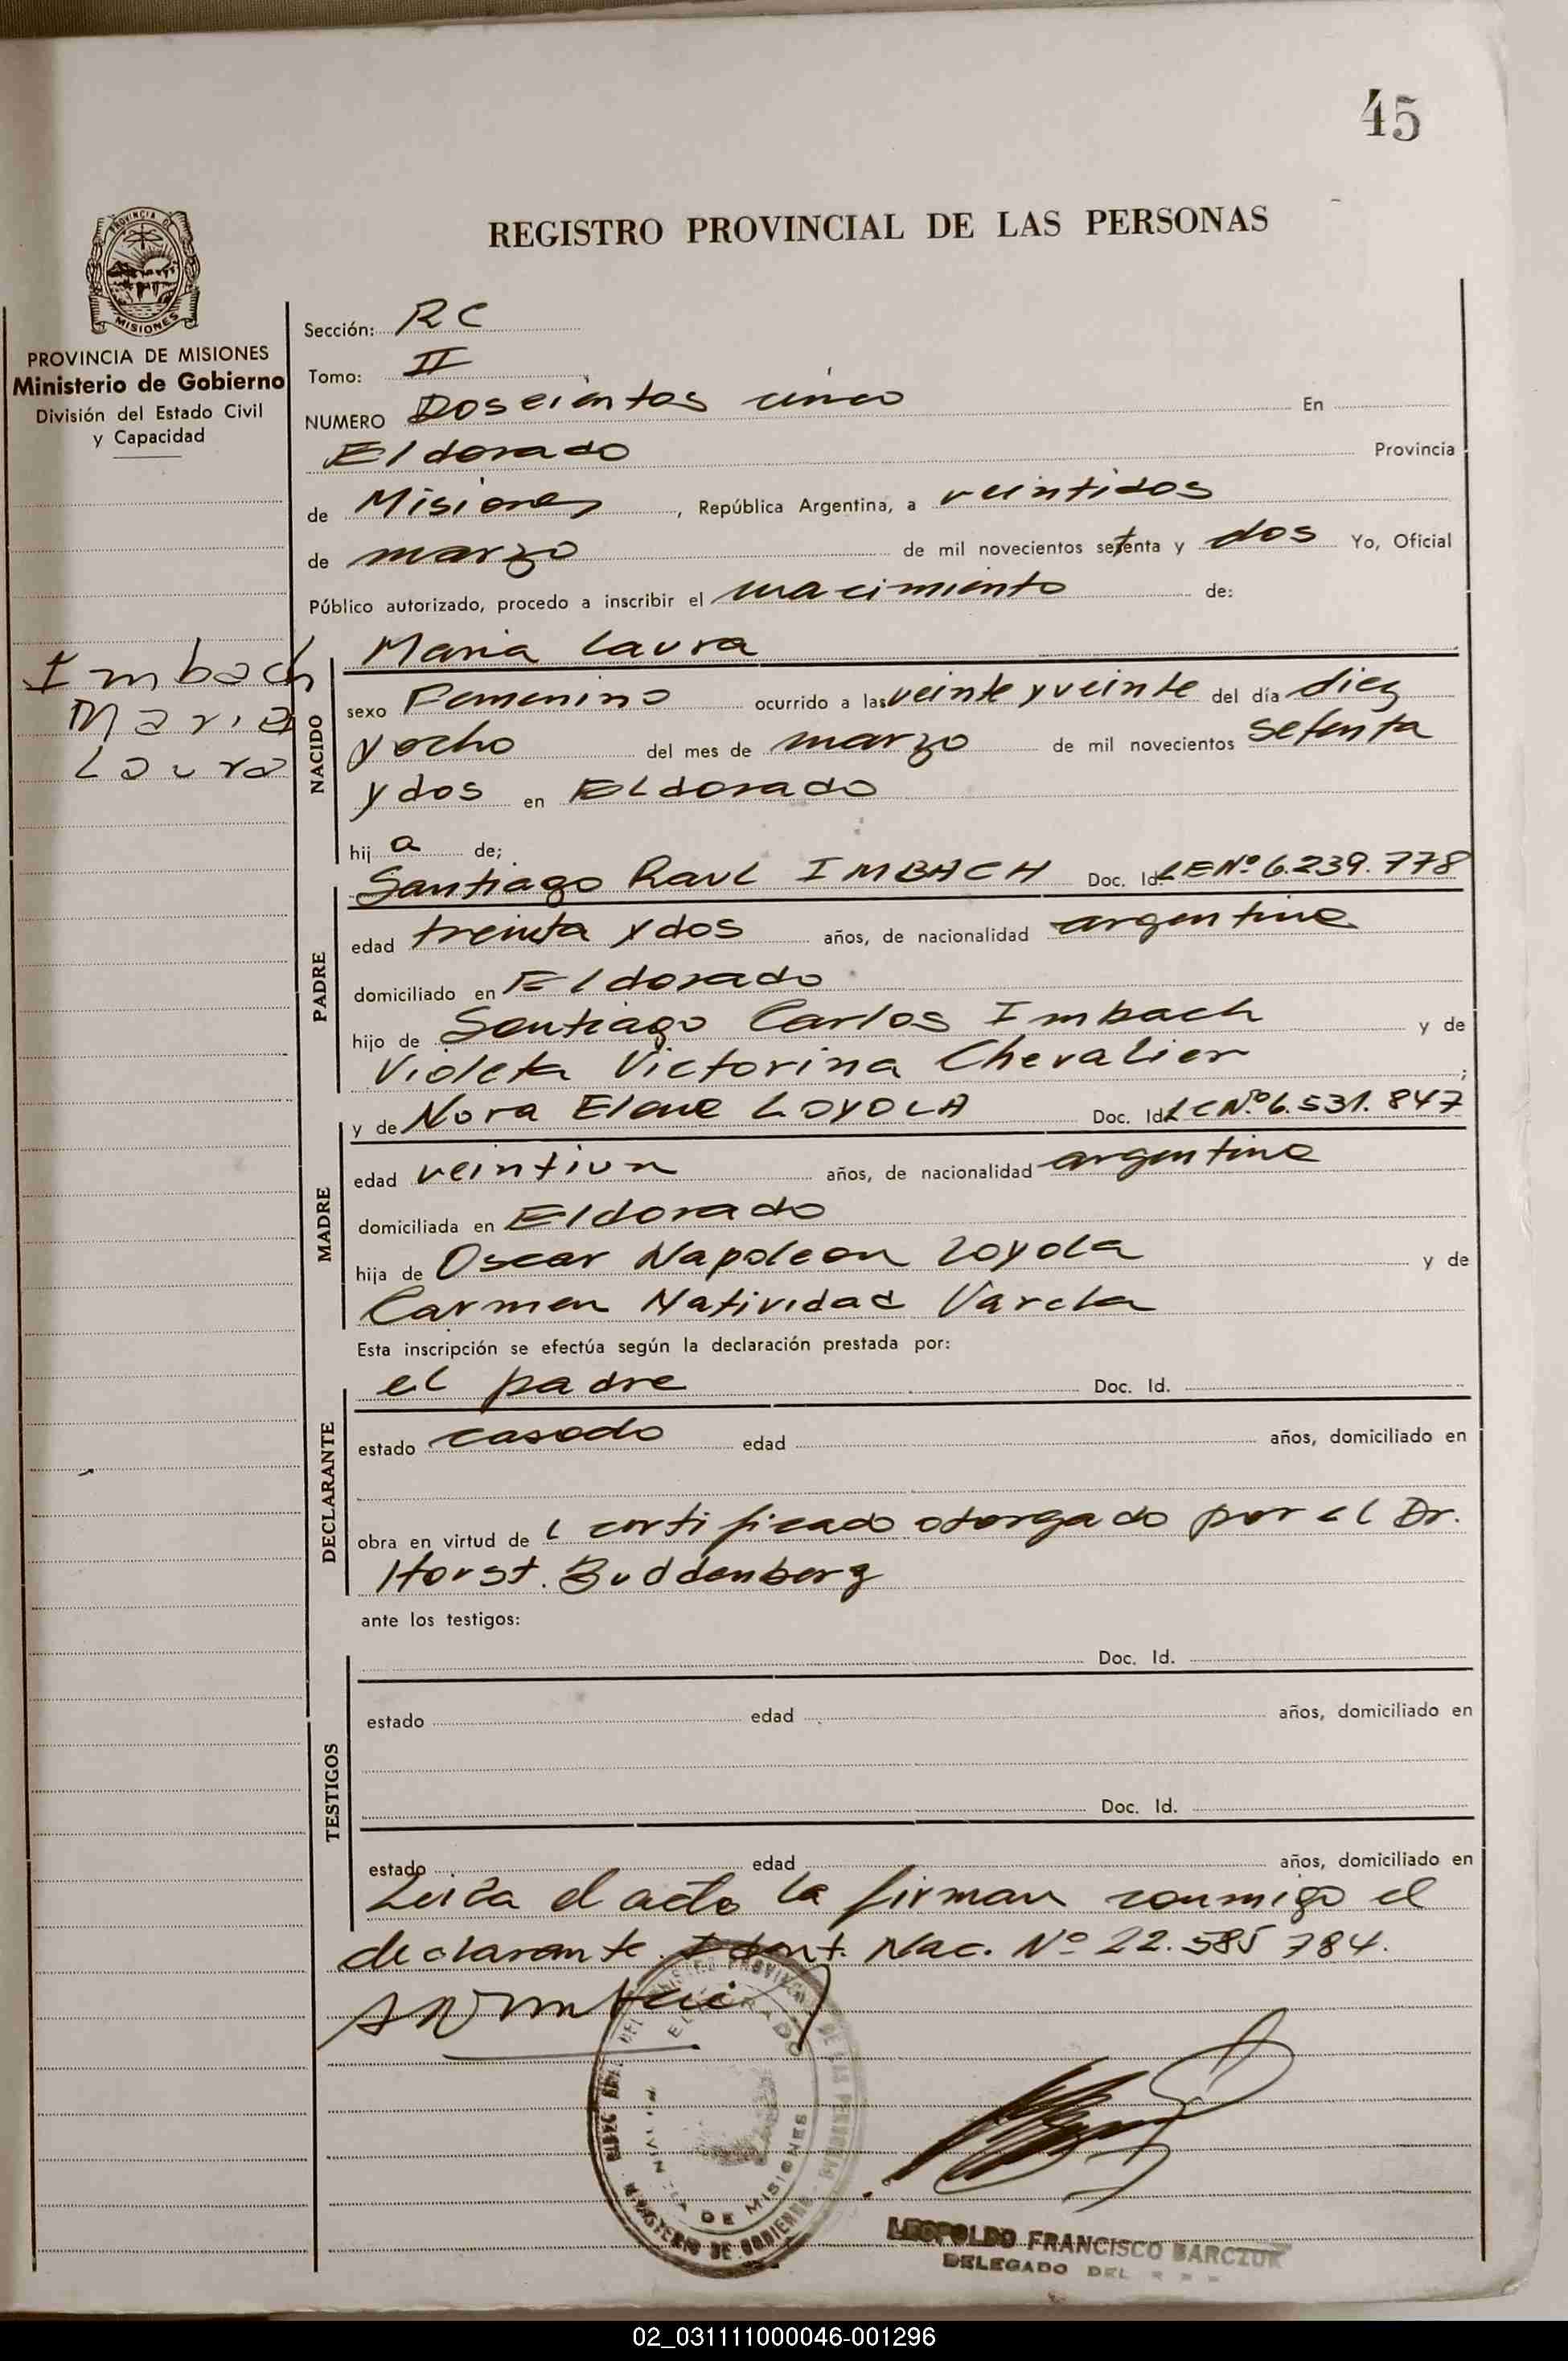 45
REGISTRO PROVINCIAL DE LAS PERSONAS
PROVINCIA DE MISIONES
PROVINCIA DE MISIONES
Ministerio de Gobierno
División del Estado Civil
y Capacidad
Imbach
Maria
Laura
Sección: RC
Tomo: II
NUMERO Doscientos cinco En
Eldorado Provincia
de Misiones, República Argentina, a veintidos
de marzo de mil novecientos setenta y dos Yo, Oficial
Público autorizado, procedo a inscribir el nacimiento de:
Maria Laura
NACIDO
sexo Femenino ocurrido a las veinte y veinte del día diez
y ocho del mes de marzo de mil novecientos setenta
y dos en Eldorado
hija de;
Santiago Raul IMBACH Doc. Id. LE Nº 6.239.778
PADRE
edad treinta y dos años, de nacionalidad argentina
domiciliado en Eldorado
hijo de Santiago Carlos Imbach y de
Violeta Victorina Chevalier;
y de Nora Elena LOYOLA Doc. Id. LC Nº 6.531.847
MADRE
edad veintiun años, de nacionalidad argentina
domiciliada en Eldorado
hija de Oscar Napoleon Loyola y de
Carmen Natividad Varela
Esta inscripción se efectúa según la declaración prestada por:
el padre Doc. Id.
DECLARANTE
estado casado edad años, domiciliado en
obra en virtud de l certificado otorgado por el Dr.
Horst. Buddenberg
ante los testigos:
Doc. Id.
TESTIGOS
estado edad años, domiciliado en
Doc. Id.
estado edad años, domiciliado en
Leida el acta la firman conmigo el
declarante. Ident. Nac. Nº 22.585 784.
REGISTRO PROVINCIAL DE LAS PERSONAS
ELDORADO
PROVINCIA DE MISIONES
MINISTERIO DE GOBIERNO
LEOPOLDO FRANCISCO BARCZUK
DELEGADO DEL
02_031111000046-001296